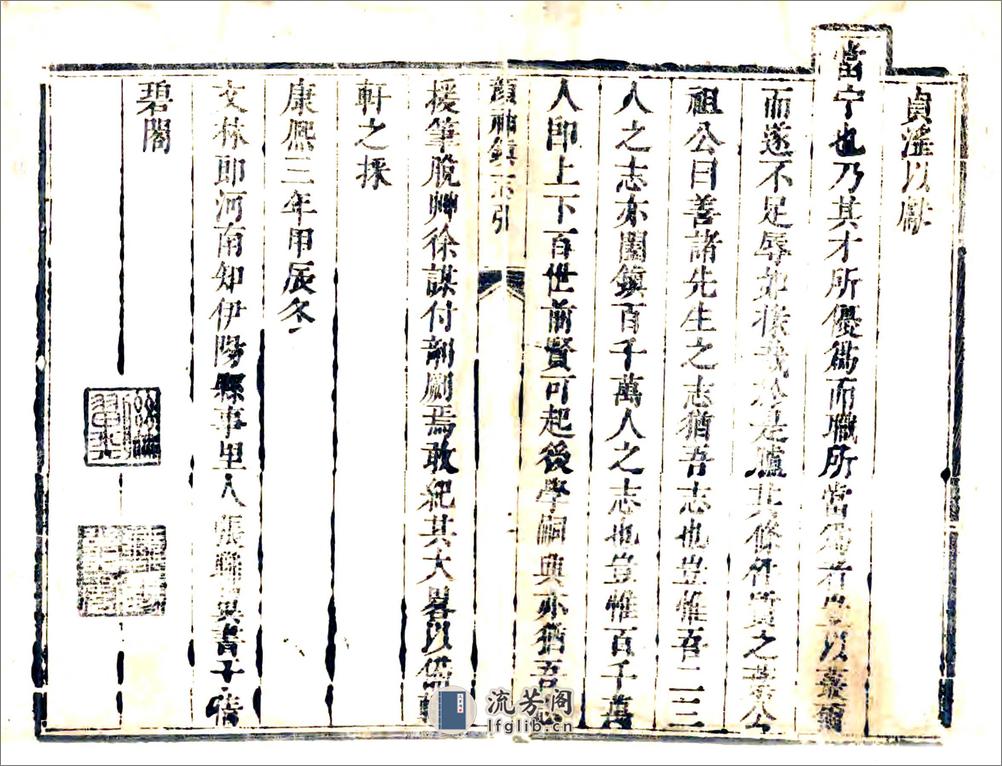 貞淫以獻
當宁也乃其才所優爲而職所當爲者豈以蕞爾
而遂不足辱 於是臚其條任質之葉公
祖公曰善諸先生之志猶吾志也豈惟吾二三
人之志亦闔鎮百千萬人之志也豈惟百千萬
人卽上下百世前賢可起後學嗣典亦猶吾志
顏神鎮志引
援筆脫艸徐謀付剞劂焉敢紀其大畧以備輶
軒之採
康熙三年甲辰冬
文林郎河南知伊陽縣事里人張聯 書于倚
碧閣
流芳阁
lfglib.cn